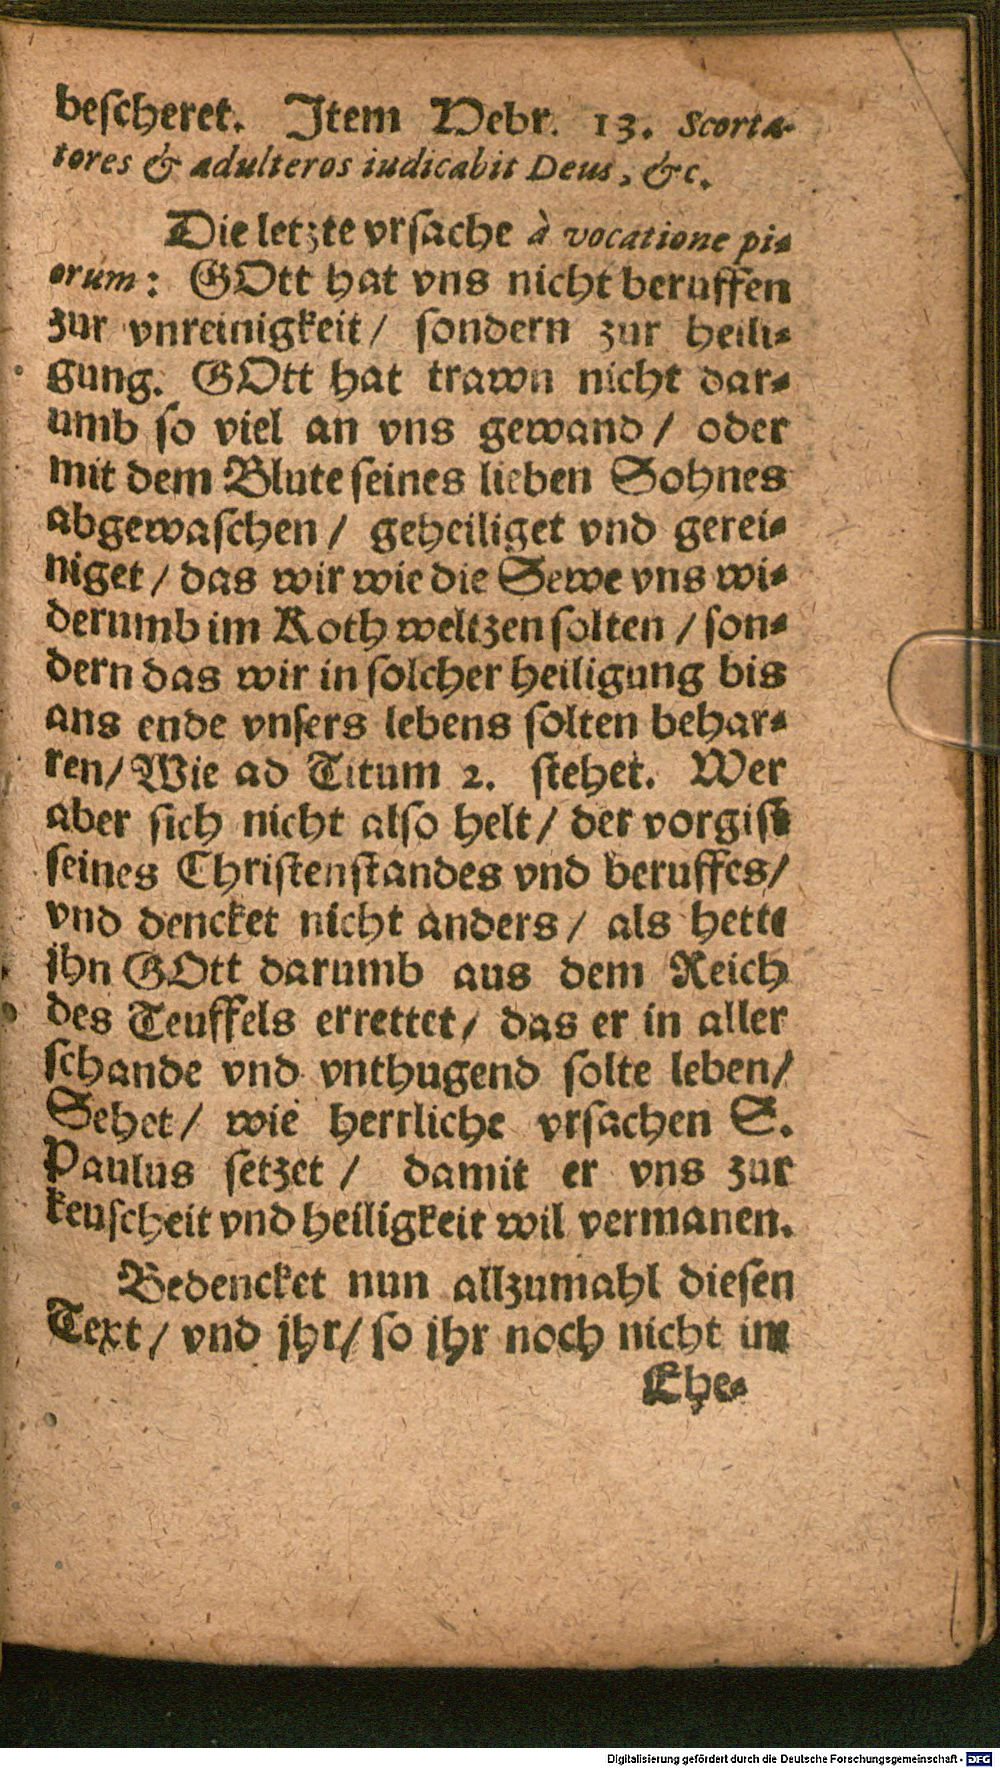 bescheret. Jtem Hebr. 13. Scorta-
tores & adulteros iudicabit Deus, &c.
Die letzte vrsache à vocatione pi-
orum: GOtt hat vns nicht beruffen
zur vnreinigkeit / sondern zur heili-
gung. GOtt hat trawn nicht dar-
umb so viel an vns gewand / oder
mit dem Blute seines lieben Sohnes
abgewaschen / geheiliget vnd gerei-
niget / das wir wie die Sewe vns wi-
derumb im Koth weltzen solten / son-
dern das wir in solcher heiligung bis
ans ende vnsers lebens solten behar-
ren / Wie ad Titum 2. stehet. Wer
aber sich nicht also helt / der vorgist
seines Christenstandes vnd beruffes /
vnd dencket nicht anders / als hette
jhn GOtt darumb aus dem Reich
des Teuffels errettet / das er in aller
schande vnd vnthugend solte leben /
Sehet / wie herrliche vrsachen S.
Paulus setzet / damit er vns zur
keuscheit vnd heiligkeit wil vermanen.
Bedencket nun allzumahl diesen
Text / vnd jhr / so jhr noch nicht im
Ehe-
Digitalisierung gefördert durch die Deutsche Forschungsgemeinschaft - DFG